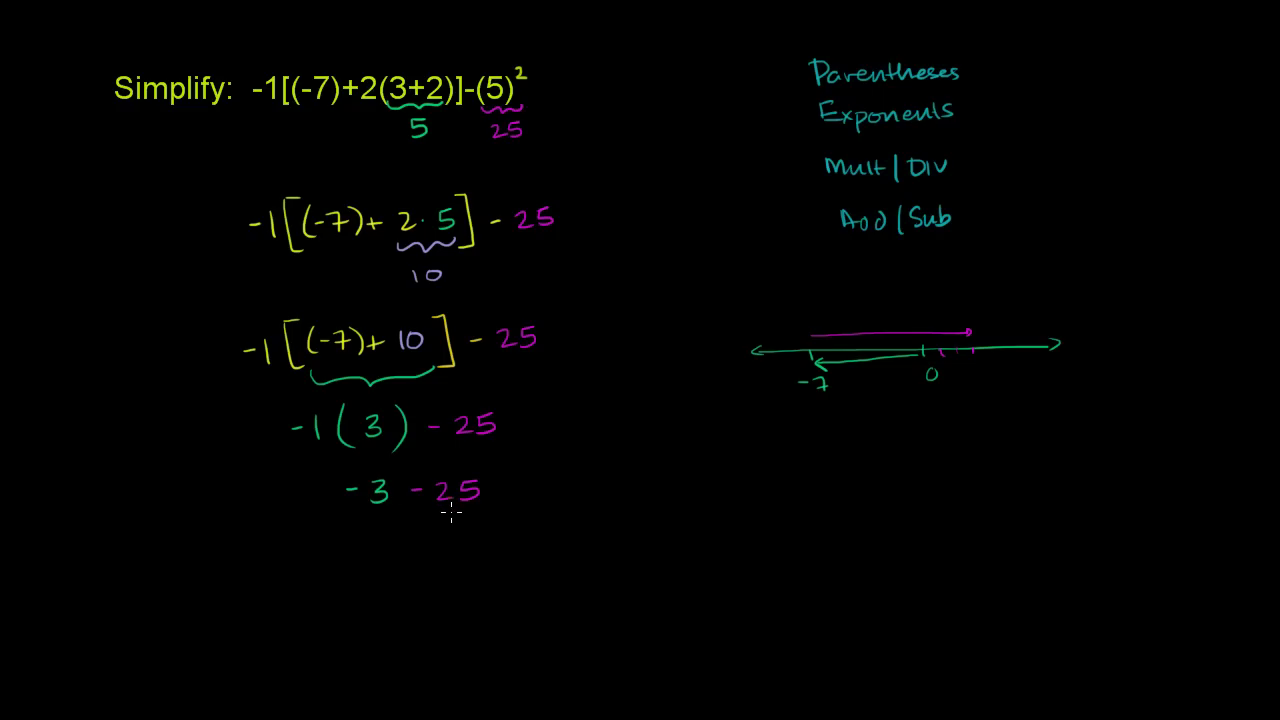 Simplify: -1[(-7)+2(3+2)]-(5)²
5 25
-1[(-7)+ 2·5] - 25
10
-1[(-7)+ 10] - 25
-1(3) - 25
-3 - 25
Parentheses
Exponents
Mult/Div
Add/Sub
-7 0